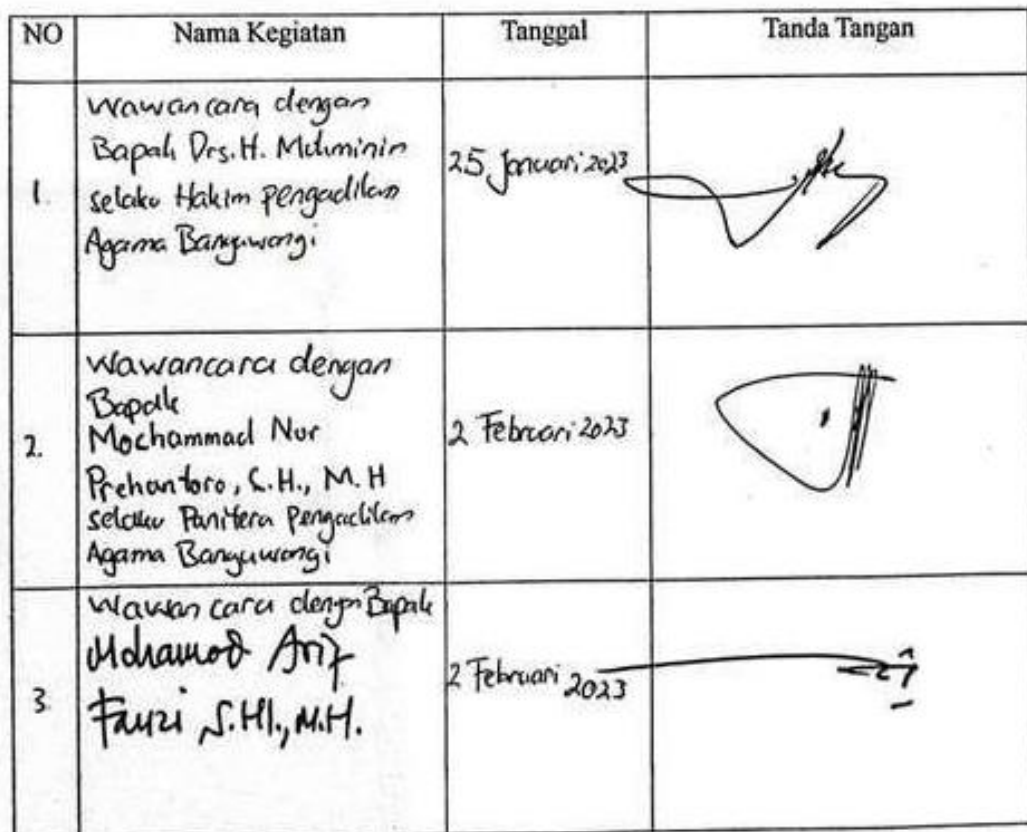 NO Nama Kegiatan Tanggal Tanda Tangan
1.
Wawancara dengan
Bapak Drs. H. Muhminin
selaku Hakim pengadilan
Agama Banyuwangi
25 Januari 2023
2.
Wawancara dengan
Bapak
Mochammad Nur
Prehantoro, S.H., M.H
selaku Panitera Pengadilan
Agama Banyuwangi
2 Februari 2023
3.
Wawancara dengan Bapak
Mohamad Arif
Fauzi S.HI., M.H.
2 Februari 2023